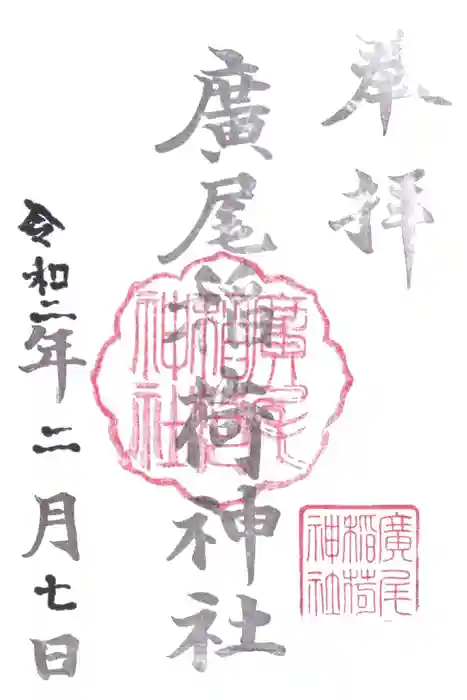 奉拝
廣尾稲荷神社
令和二年二月七日
廣尾
稲荷
神社
廣尾
稲荷
神社